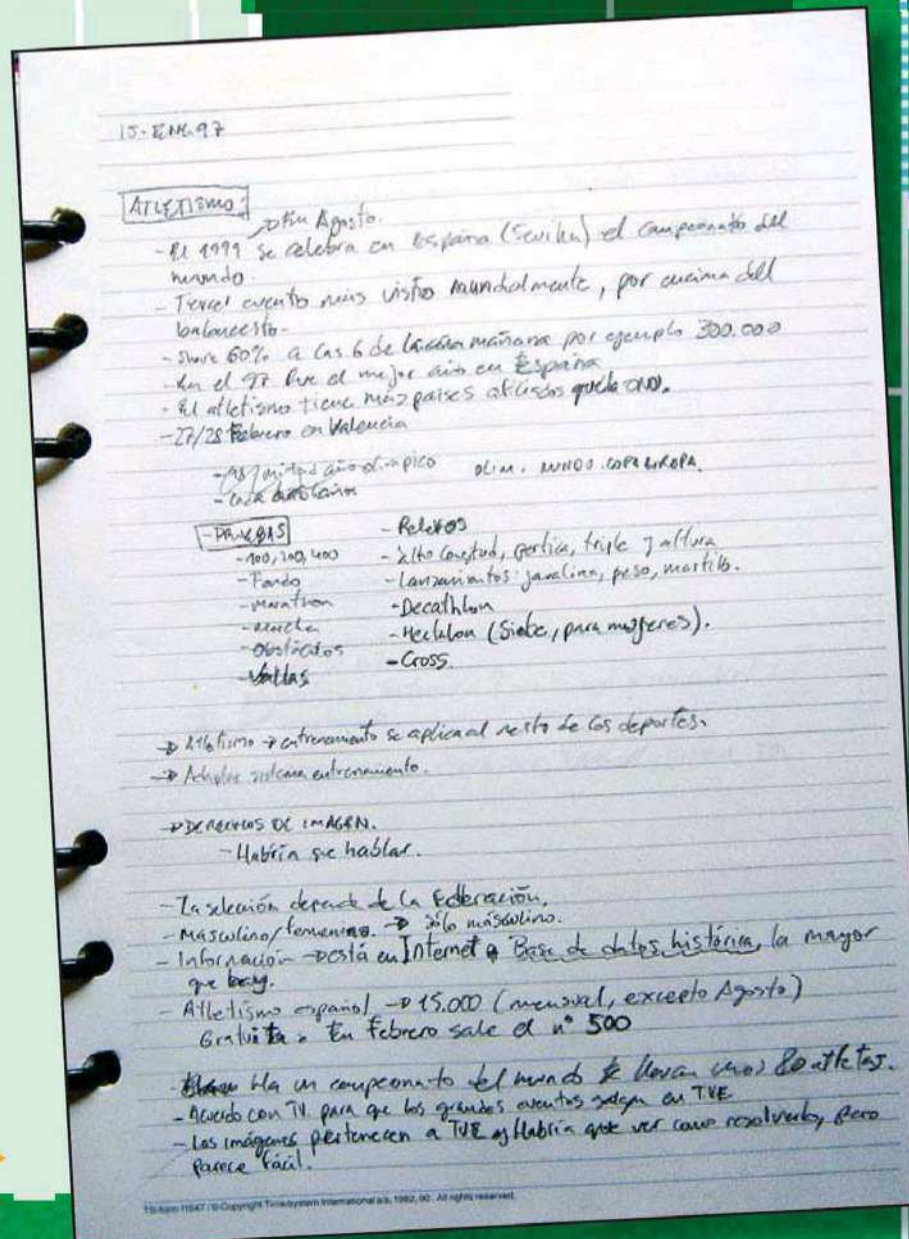 15-ENE.97
ATLETISMO:
→ En Agosto.
- El 1999 se celebra en España (Sevilla) el campeonato del
mundo.
- Tercer evento más visto mundialmente, por encima del
baloncesto.
- Share 60% a las 6 de la mañana por ejemplo 300.000
- En el 97 fue el mejor año en España
- El atletismo tiene más paises que la ONU.
- 27/28 Febrero en Valencia
- 98 mitad año olimpico OLIM. MUNDO. COPA EUROPA.
- cada años
- PRUEBAS - Relevos
- 100, 200, 400 - longitud, pertica, triple y altura
- Fondo - Lanzamientos: javalina, peso, martillo.
- Marathon - Decathlon
- Marcha (Siete, para mujeres).
- Obstáculos - Cross.
- Vallas
→ Atletismo → entrenamiento se aplica al resto de los deportes.
→ sistema entrenamiento.
→ DERECHOS DE IMAGEN.
- Habría que hablar.
- La selección depende de la Federación.
- Masculino/femenino. → Sólo masculino.
- Información → está en Internet Base de datos histórica, la mayor
que hay.
- Atletismo español → 15.000 (mensual, excepto Agosto)
Gratuita. En Febrero sale el nº 500
- un campeonato del mundo se llevan unos 80 atletas.
- Acuerdo con TV. para que los grandes eventos salgan en TVE
- Las imágenes pertenecen a TVE y Habría que ver como resolverlo, pero
parece fácil.
TS-form 11647 / © Copyright Timesystem International a/s, 1992, 90. All rights reserved.